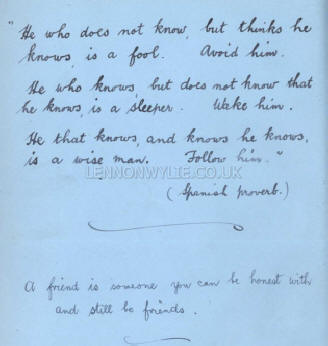 "He who does not know, but thinks he
knows, is a fool. Avoid him.
He who knows, but does not know that
he knows, is a sleeper. Wake him.
He that knows, and knows he knows,
is a wise man. Follow him."
LENNONWYLIE.CO.UK
(Spanish proverb.)
A friend is someone you can be honest with
and still be friends.